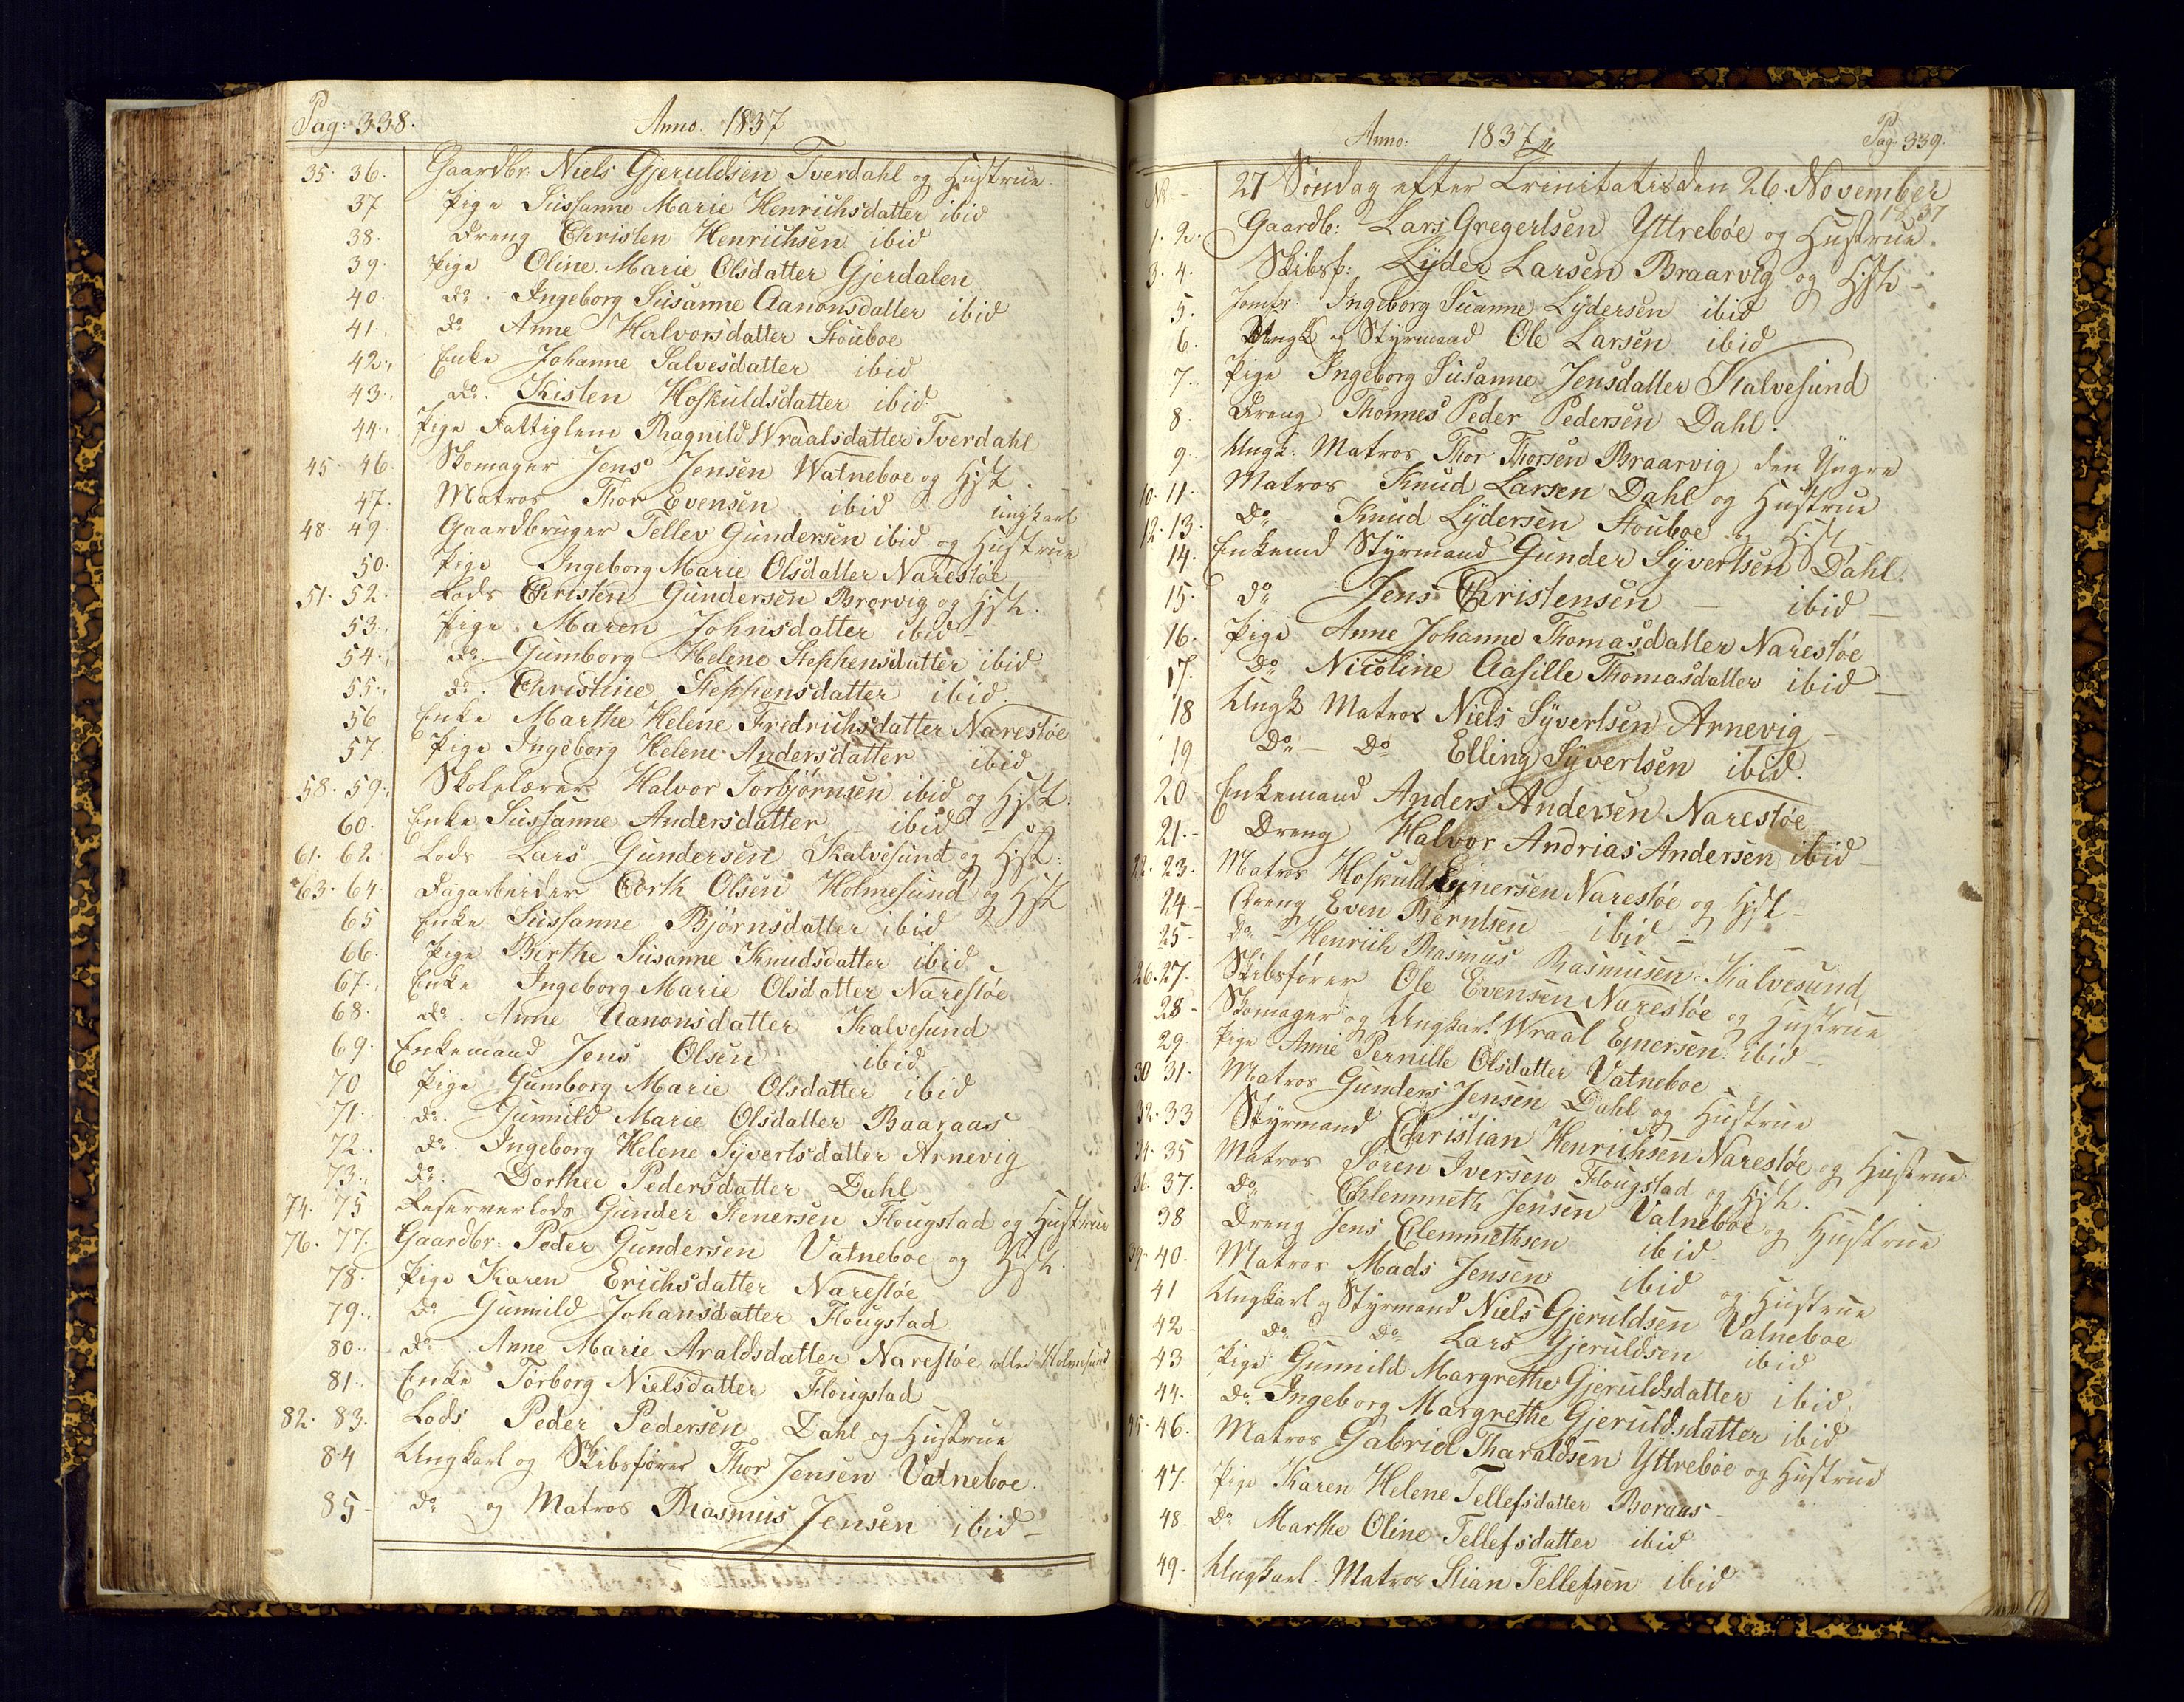 Pag: 338.
Anno. 1837
35. 36. Gaardbr: Niels Gjeruldsen Tverdahl og Hustrue
37 Pige Sussanne Marie Henrichsdatter ibid
38. Dreng Christen Henrichsen ibid
39. Pige Oline Marie Olsdatter Gjerdalen
40. do. Ingeborg Susanne Aanonsdatter ibid
41. do Anne Halvorsdatter Stouboe
42. Enke Johanne Salvesdatter ibid
43. do. Kisten Hoskuldsdatter ibid
44. Pige Fattiglem Ragnild Wraalsdatter Tverdahl
45. 46. Skomager Jens Jensen Watneboe og Hst.
47. Matros Thor Evensen ibid ungkarl
48. 49. Gaardbruger Tellev Gundersen ibid og Hustrue
50. Pige Ingeborg Marie Olsdatter Narestøe
51. 52. Lods Christen Gundersen Brorvig og Hst.
53. Pige Maren Johnsdatter ibid
54. do. Gumborg Helene Stephensdatter ibid
55. do. Christine Stephensdatter ibid.
56 Enke Marthe Helene Fredrichsdatter Narestøe
57. Pige Ingeborg Helene Andersdatter ibid
58. 59. Skolelærer Halvor Torbjørnsen ibid og Hst.
60. Enke Sussanne Andersdatter ibid
61. 62 Lods Lars Gundersen Kalvesund og Hst:
63. 64. Dagarbeider Corth Olsen Holmesund og Hst
65 Enke Sussanne Bjørnsdatter ibid
66. Pige Birthe Susanne Knudsdatter ibid
67. Enke Ingeborg Marie Olsdatter Narestøe
68. do. Anne Aanonsdatter Kalvesund
69. Enkemand Jens Olsen ibid
70 Pige Gumborg Marie Olsdatter ibid
71. do. Gunnild Marie Olsdatter Baaraas
72. do. Ingeborg Helene Syvertsdatter Arnevig
73. do. Dorthee Pedersdatter Dahl
74. 75 Reserverlods Gunder Stenersen Flougstad og Hustrue
76. 77. Gaardbr: Peder Gundersen Vatneboe og Hst.
78. Pige Karen Erichsdatter Narestøe
79. do Gunnild Johansdatter Flougstad
80. do. Anne Marie Araldsdatter Narestøe eller Kalvesund
81. Enke Torborg Nielsdatter Flougstad
82. 83. Lods Peder Pedersen Dahl og Hustrue
84 Ungkarl og Skibsfører Thor Jensen Vatneboe.
85 do og Matros Rasmus Jensen ibid
Anno: 1837
Pag: 339.
No 27 Søndag efter Trinitatis den 26. November
1837
1. 2. Gaardb: Lars Gregertsen Yttrebøe og Hustrue.
3. 4. Skibsf: Lyder Larsen Braarvig og Hst
5. Jomfr: Ingeborg Suanne Lydersen ibid
6. Ungk og Styrmand Ole Larsen ibid
7. Pige Ingeborg Susanne Jensdatter Kalvesund
8. Dreng Thomes Peder Pedersen Dahl.
9. Ungk: Matros Thor Thorsen Braarvig den Yngre
10. 11. Matros Knud Larsen Dahl og Hustrue
12. 13. do Knud Lydersen Stouboe og Hst
14. Enkemd Styrmand Gunder Syvertsen Dahl.
15. do Jens Christensen ibid
16. Pige Anne Johanne Thomasdatter Narestøe
17. do Nicoline Aasille Thomasdatter ibid
18 Ungk Matros Niels Syvertsen Arnevig
19 do do Elling Syvertsen ibid.
20 Enkemand Anders Andersen Narestøe
21. Dreng Halvor Andrias Andersen ibid
22. 23. Matros Hoskuld Einersen Narestøe og Hst
24 Dreng Even Berntsen ibid
25 do Henrich Rasmus Rasmusen Kalvesund
26. 27. Skibsfører Ole Evensen Narestøe og Hustrue
28 Skomager og Ungkarl Wraal Einersen ibid
29. Pige Anne Pernille Olsdatter Vatneboe
30 31. Matros Gunder Jensen Dahl og Hustrue
32. 33 Styrmand Christian Henrichsen Narestøe og Hustrue
34. 35 Matros Søren Iversen Flougstad og Hst.
36. 37. do Chlemmeth Jensen Vatneboe og Hustrue
38 Dreng Jens Clemmethsen ibid
39. 40. Matros Mads Jensen ibid og Hustrue
41 Ungkarl og Styrmand Niels Gjeruldsen Vatneboe
42 do do Lars Gjeruldsen ibid
43 Pige Gunnild Margrethe Gjeruldsdatter ibid
44. do Ingeborg Margrethe Gjeruldsdatter ibid
45. 46. Matros Gabriel Tharaldsen Yttrebøe og Hustrue
47. Pige Karen Helene Tellefsdatter Boraas
48. do Marthe Oline Tellefsdatter ibid
49. Ungkarl Matros Stian Tellefsen ibid